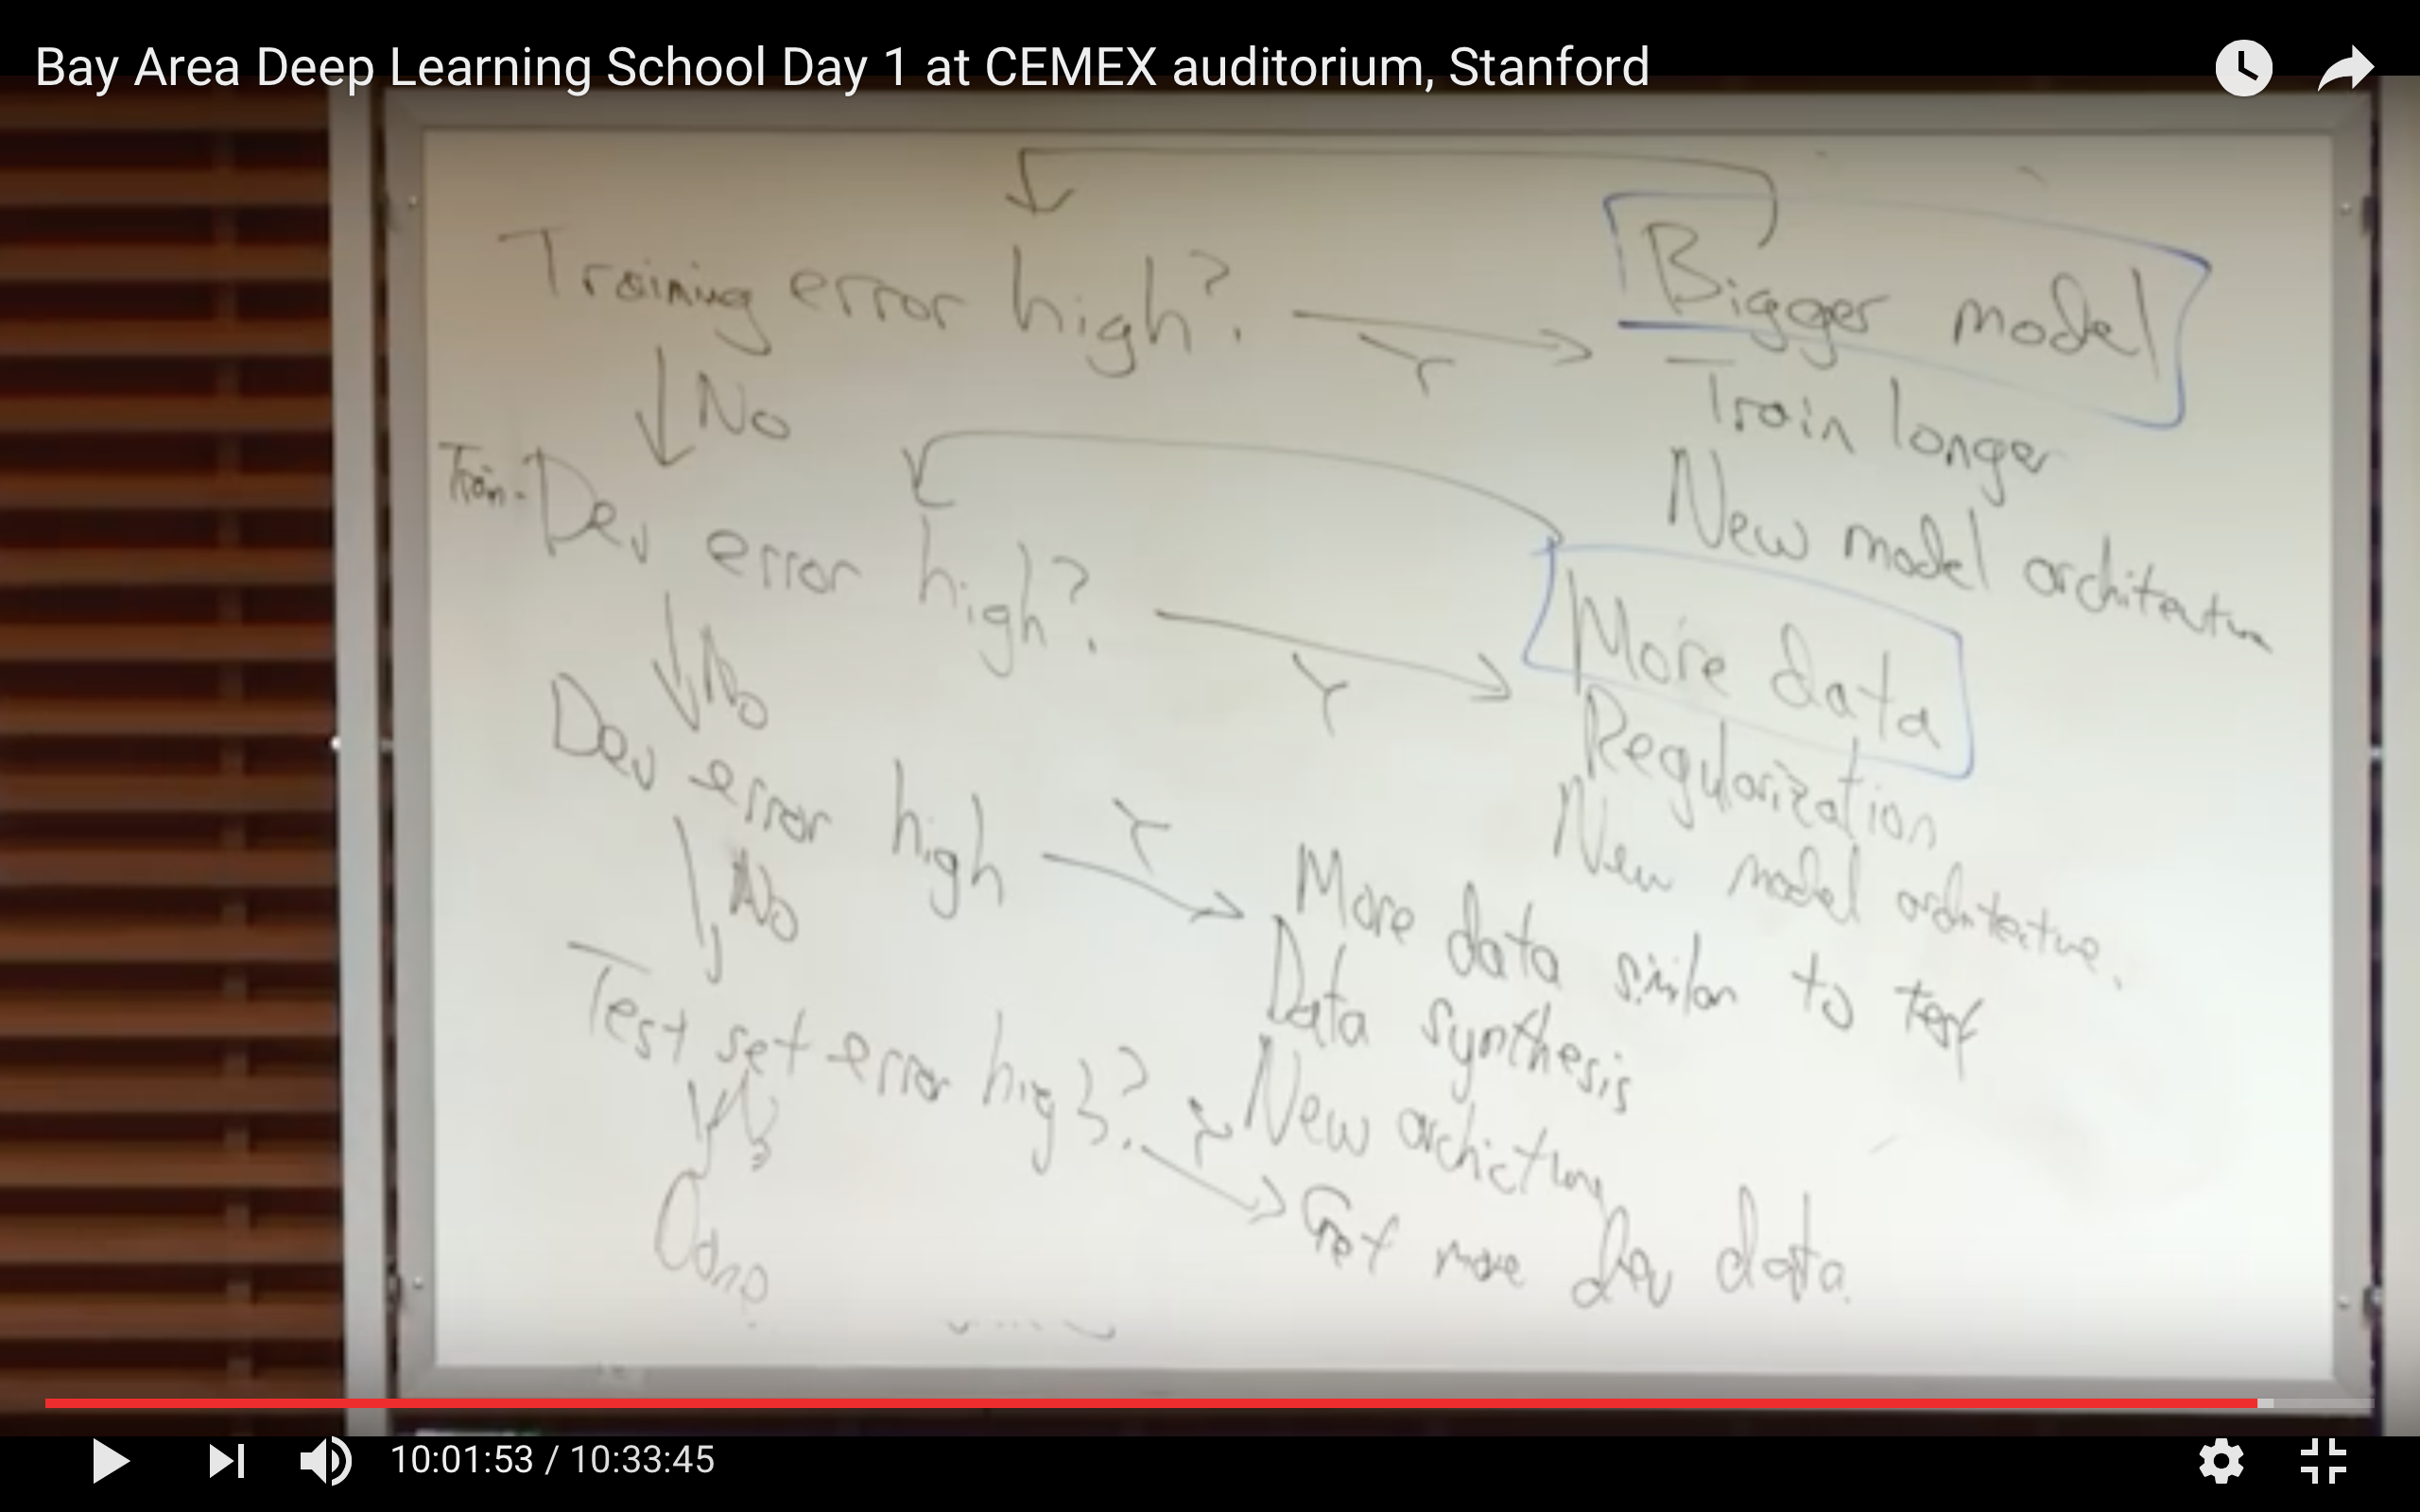 Bay Area Deep Learning School Day 1 at CEMEX auditorium, Stanford
Training error high? Y Bigger model
Train longer
New model architecture
No
Train-Dev error high? Y More data
Regularization
New model architecture.
No
Dev error high Y More data similar to test
Data synthesis
New archicture
No
Test set error high? Y Get more dev data.
No
Done
10:01:53 / 10:33:45